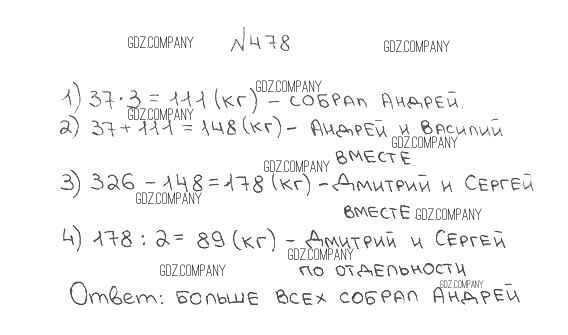 GDZ.COMPANY №478 GDZ.COMPANY
GDZ.COMPANY
1) 37 · 3 = 111 (кг) – СОБРАЛ АНДРЕЙ.
GDZ.COMPANY
2) 37 + 111 = 148 (кг) – АНДРЕЙ И ВАСИЛИЙ
GDZ.COMPANY
ВМЕСТЕ
GDZ.COMPANY
3) 326 – 148 = 178 (кг) – ДМИТРИЙ И СЕРГЕЙ
GDZ.COMPANY
ВМЕСТЕ GDZ.COMPANY
4) 178 : 2 = 89 (кг) – ДМИТРИЙ И СЕРГЕЙ
GDZ.COMPANY
GDZ.COMPANY ПО ОТДЕЛЬНОСТИ
GDZ.COMPANY
Ответ: БОЛЬШЕ ВСЕХ СОБРАЛ АНДРЕЙ